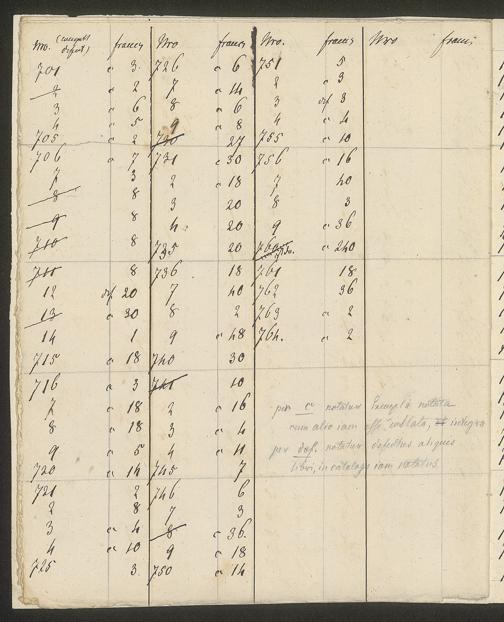 Nro. francs
701 c 3
2 c 2
3 c 6
4 c 5
705 c 2
706 c 7
7 3
8 8
9 8
710 8
711 8
12 def 20
13 c 30
14 1
715 c 18
716 c 3
7 c 18
8 c 18
9 c 5
720 c 14
721 2
2 8
3 c 4
4 c 10
725 3
Nro francs
726 c 6
7 c 14
8 c 6
9 c 8
730 27
731 c 30
2 c 18
3 20
4. 20
735 20
736 18
7 40
8 2
9 c 48
740 30
741 10
2 c 16
3 c 4
4 c 11
745 7
746 6
7 3
8 c 36
9 c 18
750 c 14
Nro. francs
751 5
2 c 3
3 def 3
4 c 4
755 c 10
756 c 16
7 40
8 3
9 c 36
760 c 240
761 18
762 36
763 c 2
764. c 2
Nro francs
per c notatur Exempla notata
cum alio iam esse collata, et integra
per def. notatur defectus aliquis
libri, in catalogo iam notatus.